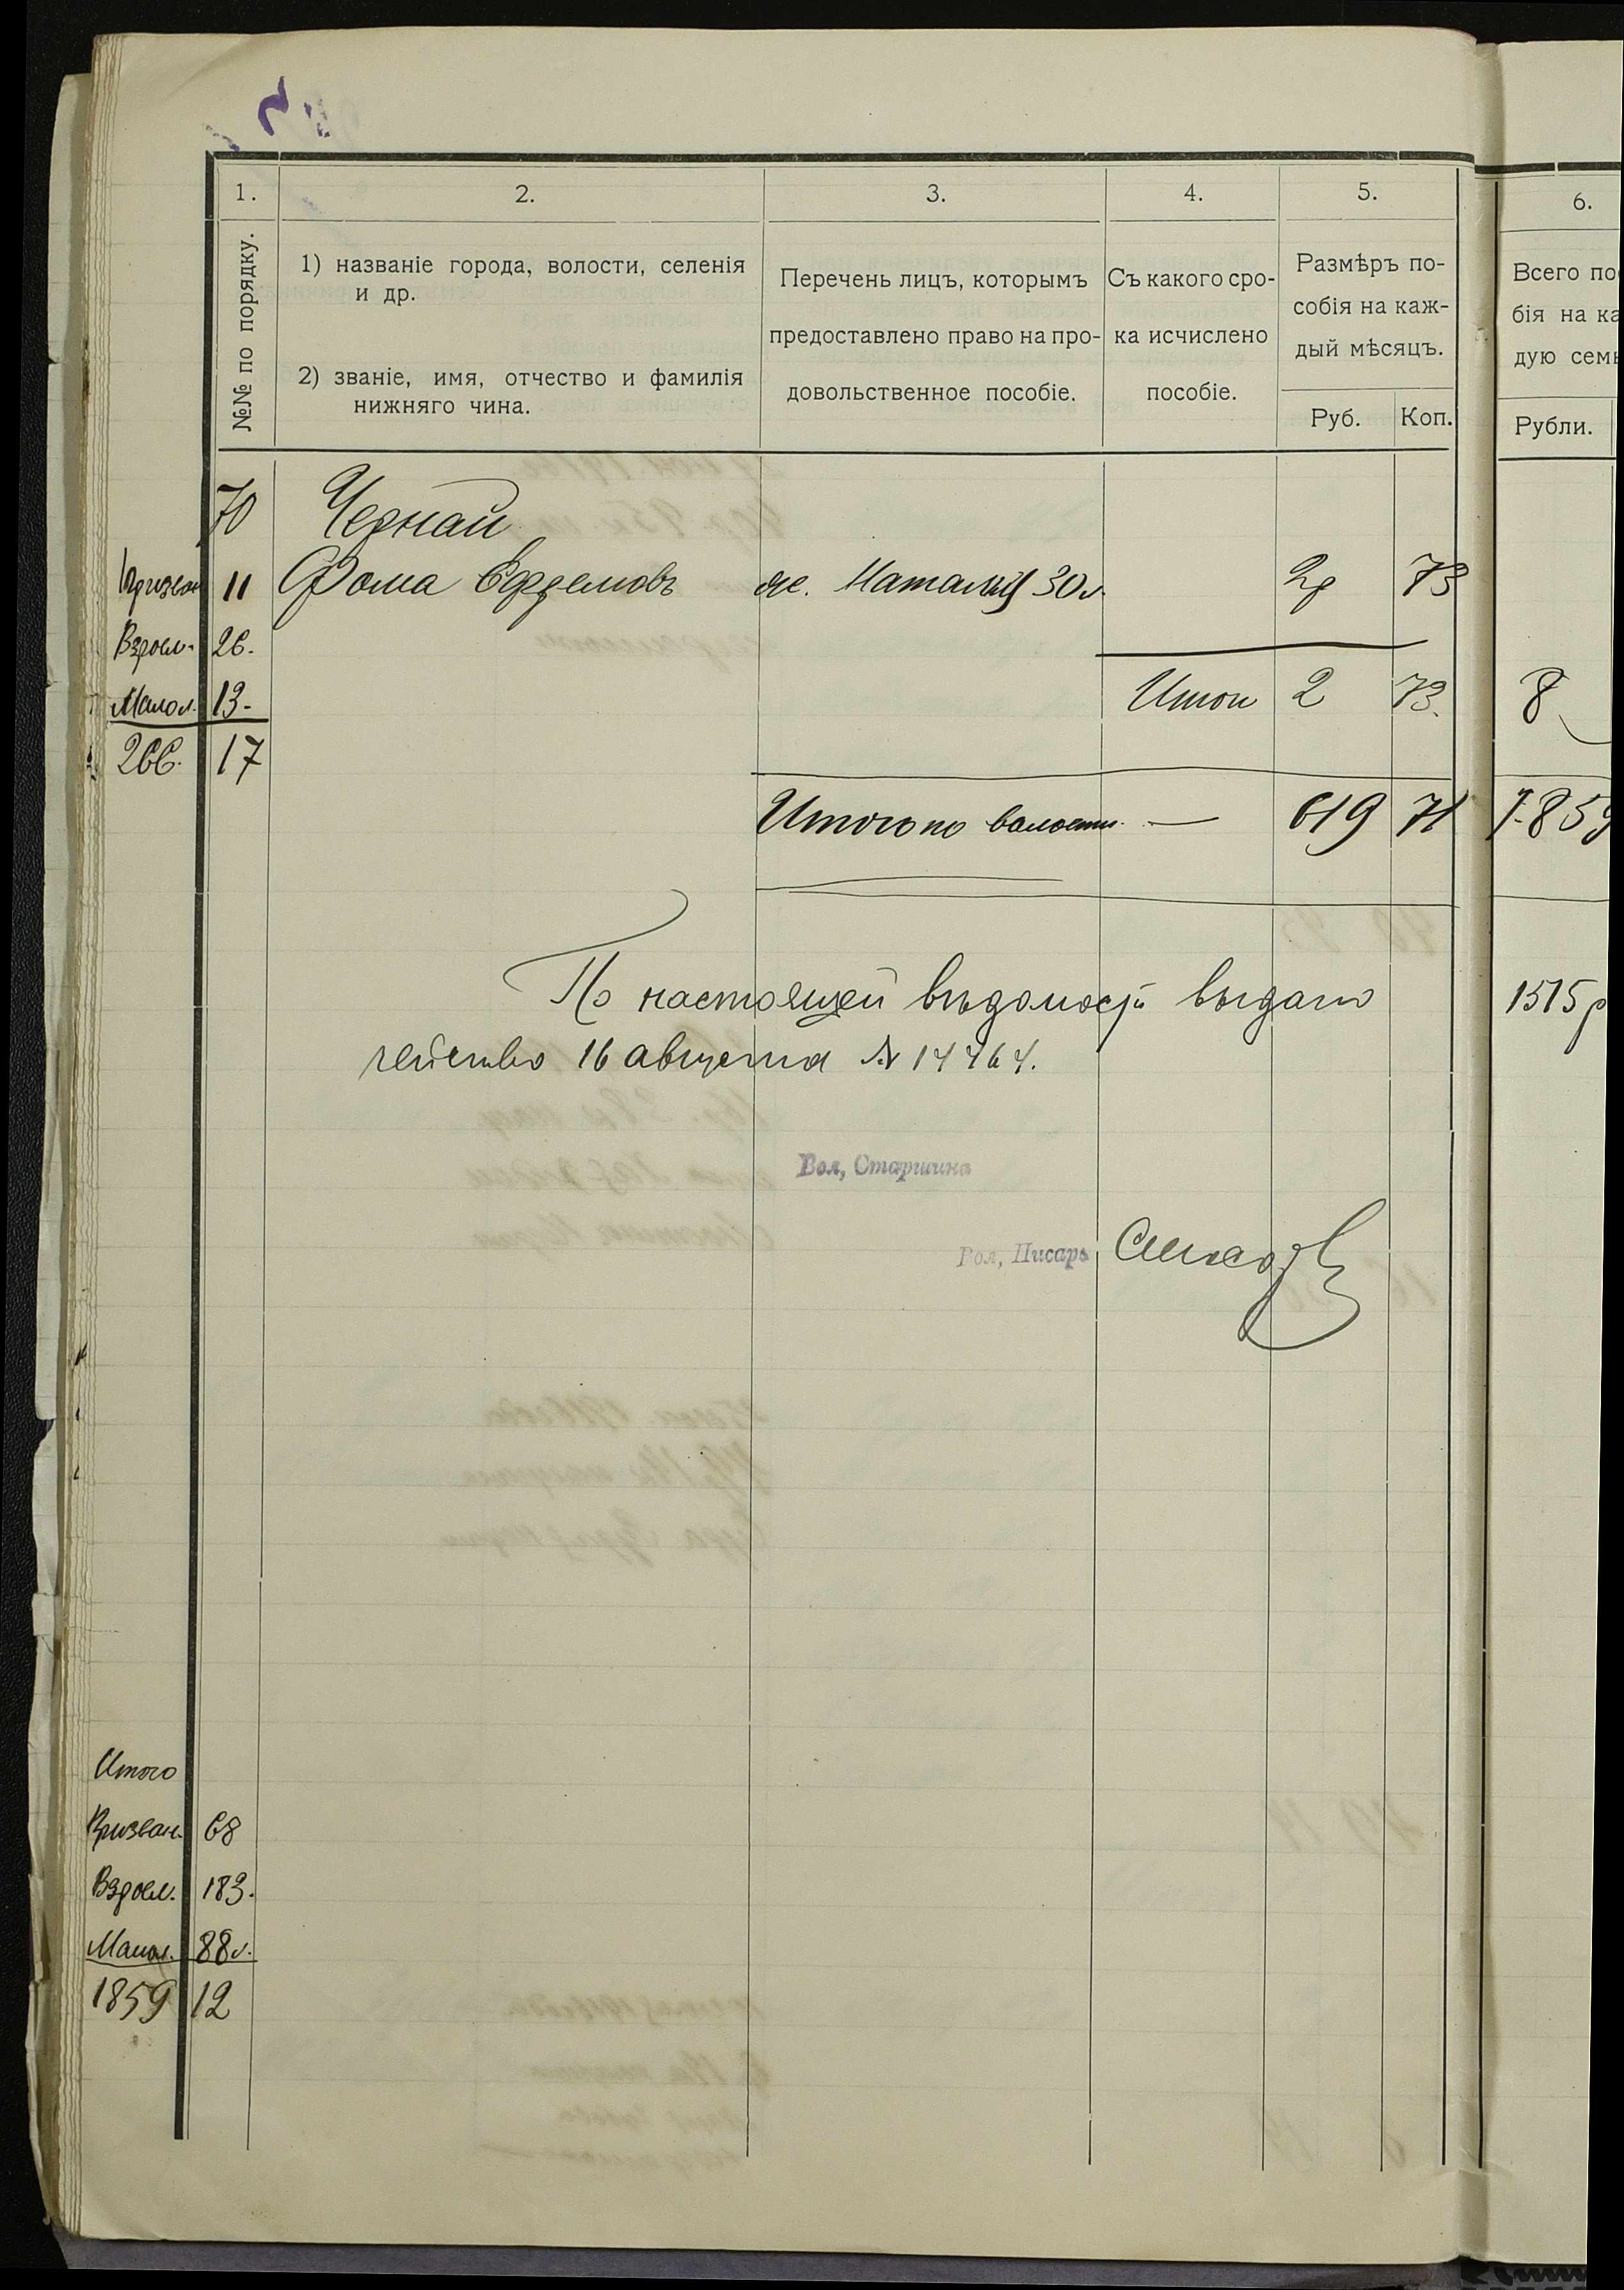 1. 2. 3. 4. 5. 6.
№№ по порядку.
1) названіе города, волости, селенія
и др.
2) званіе, имя, отчество и фамилія
нижняго чина.
Перечень лицъ, которымъ
предоставлено право на про-
довольственное пособіе.
Съ какого сро-
ка исчислено
пособіе.
Размѣръ по-
собія на каж-
дый мѣсяцъ.
Руб. Коп.
Всего по
бія на ка
дую семь
Рубли.
70 Чернай
Призван 11 Фома Ефремовъ ж. Наталія 30 л. 2р 73
Взросл. 26.
Малол. 13. Итого 2 73. 8
266. 17
Итого по волости — 619 71 1859
По настоящей вѣдомости выдано 1515р
16 августа № 14464.
Вол, Старшина
Вол, Писарь
Итого
Призван. 68
Взросл. 183.
Малол. 88
1859 12